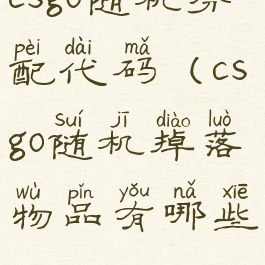 csgo随机
pèi dài mǎ
配代码（cs
suí jī diào luò
go随机掉落
wù pǐn yǒu nǎ xiē
物品有哪些